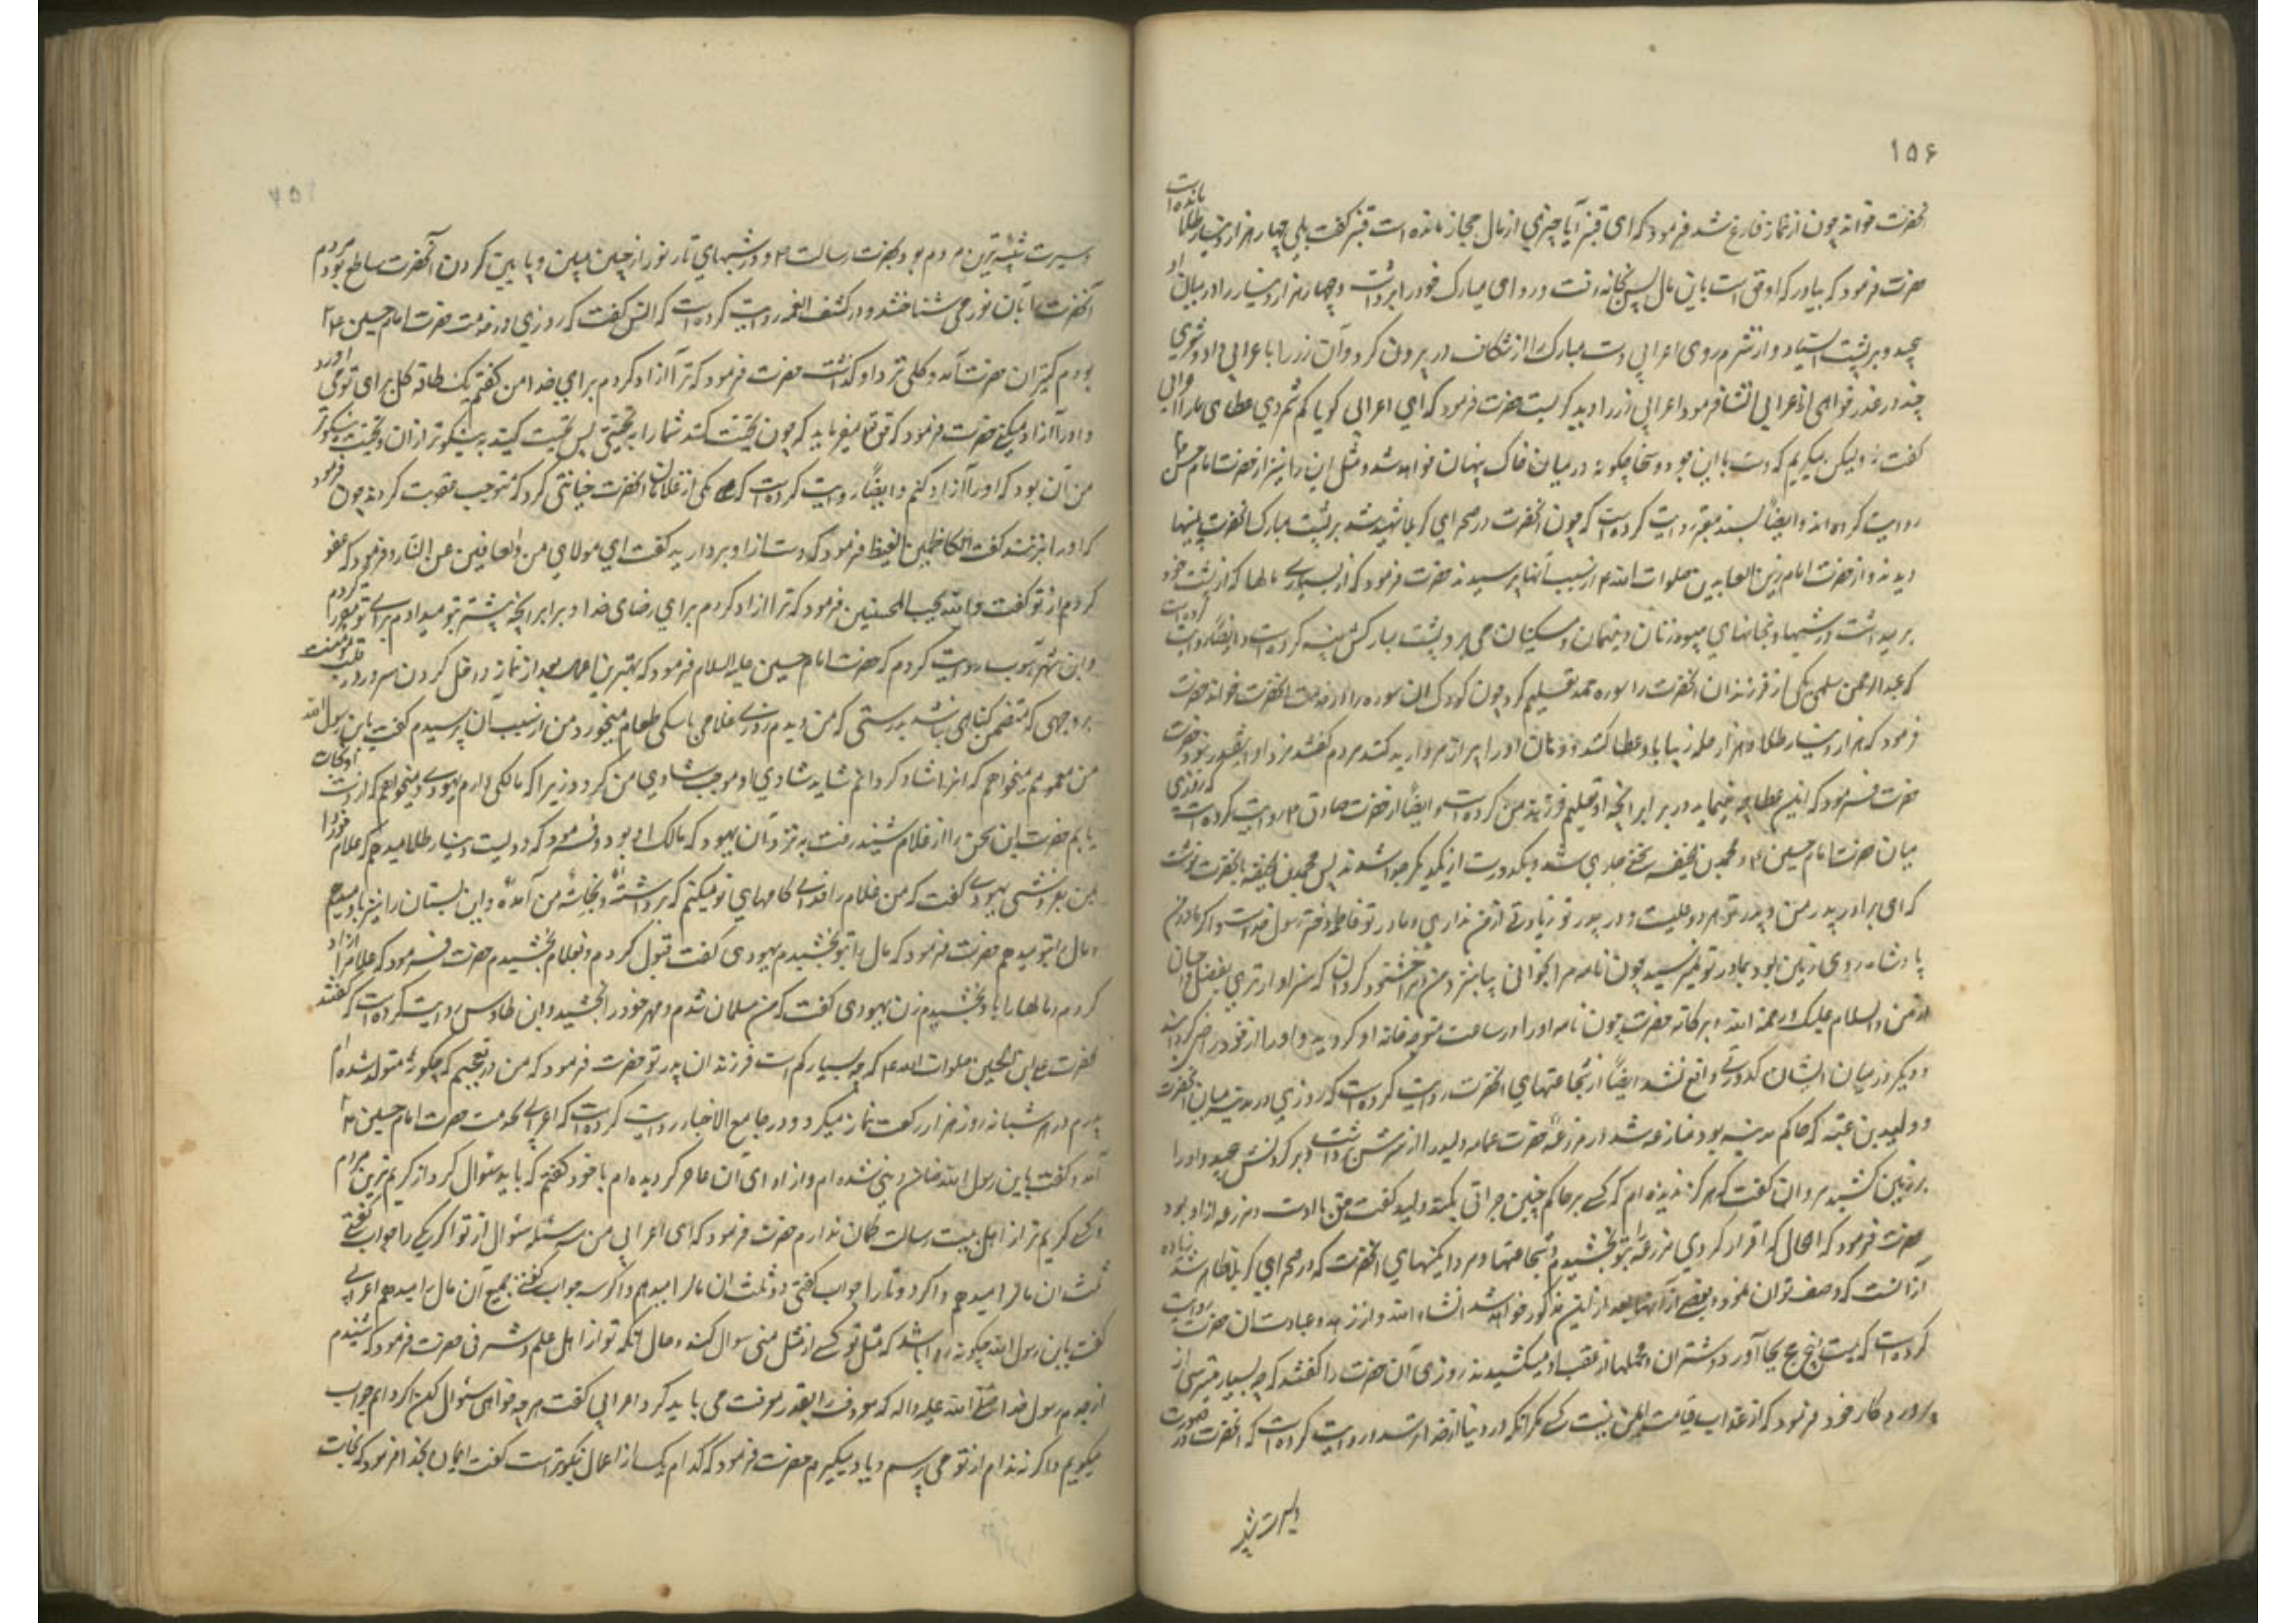 ۱۵۶
حضرت خواند چون از نماز فارغ شد فرمود که ای قنبر آیا چیزی از مال حجاز مانده است قنبر گفت بلی چهار هزار دینار طلا مانده است
حضرت فرمود که بیاور که اوقی است باین مال پس بخانه رفت و ردای مبارک خود را برداشت و چهار هزار دینار را در میان او
پیچید و بر پشت ایستاد و از شرم روی اعرابی دست مبارک را از شکاف در بیرون کرد و آن زر را باعرابی داد و شعری
چند در عذر خواهی از اعرابی انشا فرمود اعرابی زر را دید گریست حضرت فرمود که ای اعرابی گویا کم شمردی عطای ما را اعرابی
گفت نه ولیکن میگریم که دست با این جود و سخا چگونه در میان خاک پنهان خواهد شد و مثل این را نیز از حضرت امام حسن
روایت کرده اند و ایضاً بسند معتبر روایت کرده است که چون آنحضرت در صحرای کربلا شهید شد بر پشت مبارک آنحضرت پینها
دیدند و از حضرت امام زین العابدین صلوات الله از سبب آنها پرسیدند حضرت فرمود که از بسیاری مالها که از پشت خود
بر میداشت و در شبها بخانهای بیوه زنان و یتیمان و مسکینان می برد پشت مبارکش پینه کرده است و ایضاً روایت کرده است
که عبدالرحمن سلمی یکی از فرزندان آنحضرت را سوره حمد تعلیم کرد چون کودک آن سوره را در خدمت آنحضرت خواند حضرت
فرمود که هزار دینار طلا و هزار حله زیبا باو عطا کنند و دهان او را پر از مروارید کنند مردم گفتند مزد او اینقدر نبود حضرت
حضرت فرمود که این عطا چه مینماید در برابر آنچه او تعلیم فرزند من کرده است و ایضاً از حضرت صادق ع روایت کرده است که روزی
میان حضرت امام حسین ع و محمد بن حنفیه سخنی جاری شد و بکدورت از یکدیگر جدا شدند پس محمد بن حنفیه بحضرت نوشت
که ای برادر پدر من و پدر تو هر دو علیست و در پدر تو زیادتی از من نداری و مادر تو فاطمه دختر رسول خداست و اگر مادر من
پادشاه روی زمین بود بمادر تو نمیرسید چون نامه مرا بخوانی بیا بنزد من و مرا خشنود گردان که سزاوارتری بفضل و احسان
از من والسلام علیک و رحمة الله و برکاته حضرت چون نامه او را در ساعت متوجه خانه او گردید و او را از خود راضی گردانید
و دیگر در میان ایشان کدورتی واقع نشد ایضاً از شجاعتهای آنحضرت روایت کرده است که روزی در مدینه میان آنحضرت
و ولید بن عتبه که حاکم مدینه بود منازعه شد در مزرعهٔ حضرت عمامه ولید را از سرش برداشت و بر گردنش پیچید و او را
بر زمین کشید مروان گفت که هرگز ندیده ام که کسی بر حاکم چنین جرأتی بکند ولید گفت حق با اوست و مزرعه از او بود
حضرت فرمود که الحال که اقرار کردی مزرعه را بتو بخشیدم و شجاعتها و مردانگیهای آنحضرت که در صحرای کربلا ظاهر شد زیاده
از آنست که وصف توان نمود و بعضی از آنها بعد از این مذکور خواهد شد انشاء الله و از زهد و عبادت آن حضرت روایت
کرده است که بیست پنج حج بجا آورد و شتران و محملها از عقب او میکشیدند روزی آن حضرت را گفتند که چه بسیار میترسی از
پروردگار خود فرمود که از عذاب قیامت ایمن نیست کسی مگر آنکه در دنیا از خدا ترسد و روایت کرده است که آنحضرت در صورت
و سیرت شبیه
وسیرت شبیه ترین مردم بود بحضرت رسالت ص و در شبهای تار نور از جبین مبین و پایین گردن آنحضرت ساطع بود مردم
آنحضرت را بآن نور می شناختند و در کشف الغمه روایت کرده است که انس گفت که روزی در خدمت حضرت امام حسین ع
بودم کنیز آن حضرت آمد و گلی نزد او گذاشت حضرت فرمود که ترا آزاد کردم برای خدا من گفتم یک طاقه گل برای تو آورد
و او را آزاد میکنی حضرت فرمود که حق تعالی میفرماید که چون تحیت کنند شما را به تحیتی پس تحیت کنید به نیکوتر از آن و تحیت نیکوتر
من آن بود که او را آزاد کنم و ایضاً روایت کرده است که یکی از غلامان آنحضرت خیانتی کرد که موجب عقوبت گردید چون فرمود
که او را بزنند گفت والکاظمین الغیظ فرمود که دست از او بردارید گفت ای مولای من والعافین عن الناس فرمود که عفو
کردم از تو گفت والله یحب المحسنین فرمود که ترا آزاد کردم برای رضای خدا و برابر آنچه پیشتر بتو میدادم برای تو مقرر کردم
و ابن شهرآشوب روایت کردم که حضرت امام حسین علیه السلام فرمود که بهترین اعمال بعد از نماز داخل کردن سرور در قلب مؤمنست
بر وجهی که متضمن گناهی نباشد بدرستی که من دیدم روزی غلامی با سگی طعام میخورد من از سبب آن پرسیدم گفت یابن رسول الله
من مهمومم میخواهم که او را شاد گردانم شاید شادی او موجب شادی من گردد زیرا که مالکی دارم یهودی و میخواهم که از دست او نجات
یابم حضرت این سخن را از غلام شنید رفت به نزد آن یهود که مالک او بود و فرمود که دویست دینار طلا میدهم که غلام خود را
بمن بفروشی یهودی گفت که من غلام را فدای گامهای تو میکنم که برداشتهٔ و بخانهٔ من آمدهٔ و این بستان را نیز باو میدهم
و مال را بتو میدهم حضرت فرمود که مال را بتو بخشیدم یهودی گفت قبول کردم و بغلام بخشیدم حضرت فرمود که غلام را آزاد
کردم و مالها را باو بخشیدم زن یهودی گفت که من مسلمان شدم و مهر خود را بخشید و ابن طاوس روایت کرده است که گفتند
بحضرت علی بن الحسین صلوات الله ع که چه بسیار کم است فرزندان پدر تو حضرت فرمود که من در تعجبم که چگونه متولد شده ام
پدرم در هر شبانه روز هزار رکعت نماز میکرد و در جامع الاخبار روایت کرده است که اعرابی بخدمت حضرت امام حسین ع
آمد و گفت یابن رسول الله ضامن دینی شده ام و از ادای آن عاجز گردیده ام با خود گفتم که باید سئوال کرد از کریم ترین مردم
و کسی کریم تر از اهل بیت رسالت گمان ندارم حضرت فرمود که ای اعرابی من سه مسئله سئوال از تو اگر یکی را جواب گفتی
ثلث آن مال را میدهم و اگر دو تا را جواب گفتی دو ثلث آن مال را میدهم و اگر سه جواب گفتی جمیع آن مال را میدهم اعرابی
گفت یابن رسول الله چگونه روا باشد که مثل تو کسی از مثل منی سوال کند و حال آنکه تو از اهل علم و شرفی حضرت فرمود که شنیدم
از جدم رسول خدا صلی الله علیه واله که معروف را بقدر معرفت می باید کرد اعرابی گفت هر چه خواهی سئوال کن اگر دانم جواب
میگویم و اگر ندانم از تو می پرسم و یاد میگیرم حضرت فرمود که کدام یک از اعمال نیکوتر است گفت ایمان بخدا فرمود که نجات